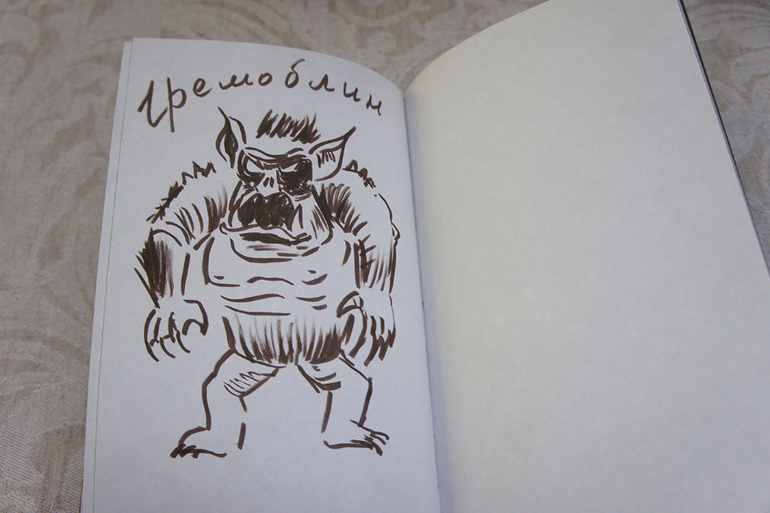 гремоблин